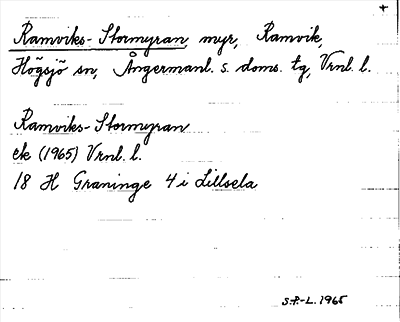 +
Ramviks-Stormyran, myr, Ramvik,
Högsjö sn, Ångermanl. s. doms. tg, Vrnl. l.
Ramviks-Stormyran
ek (1965) Vrnl. l.
18 H Graninge 4 i Lillsela
S.P.-L. 1965